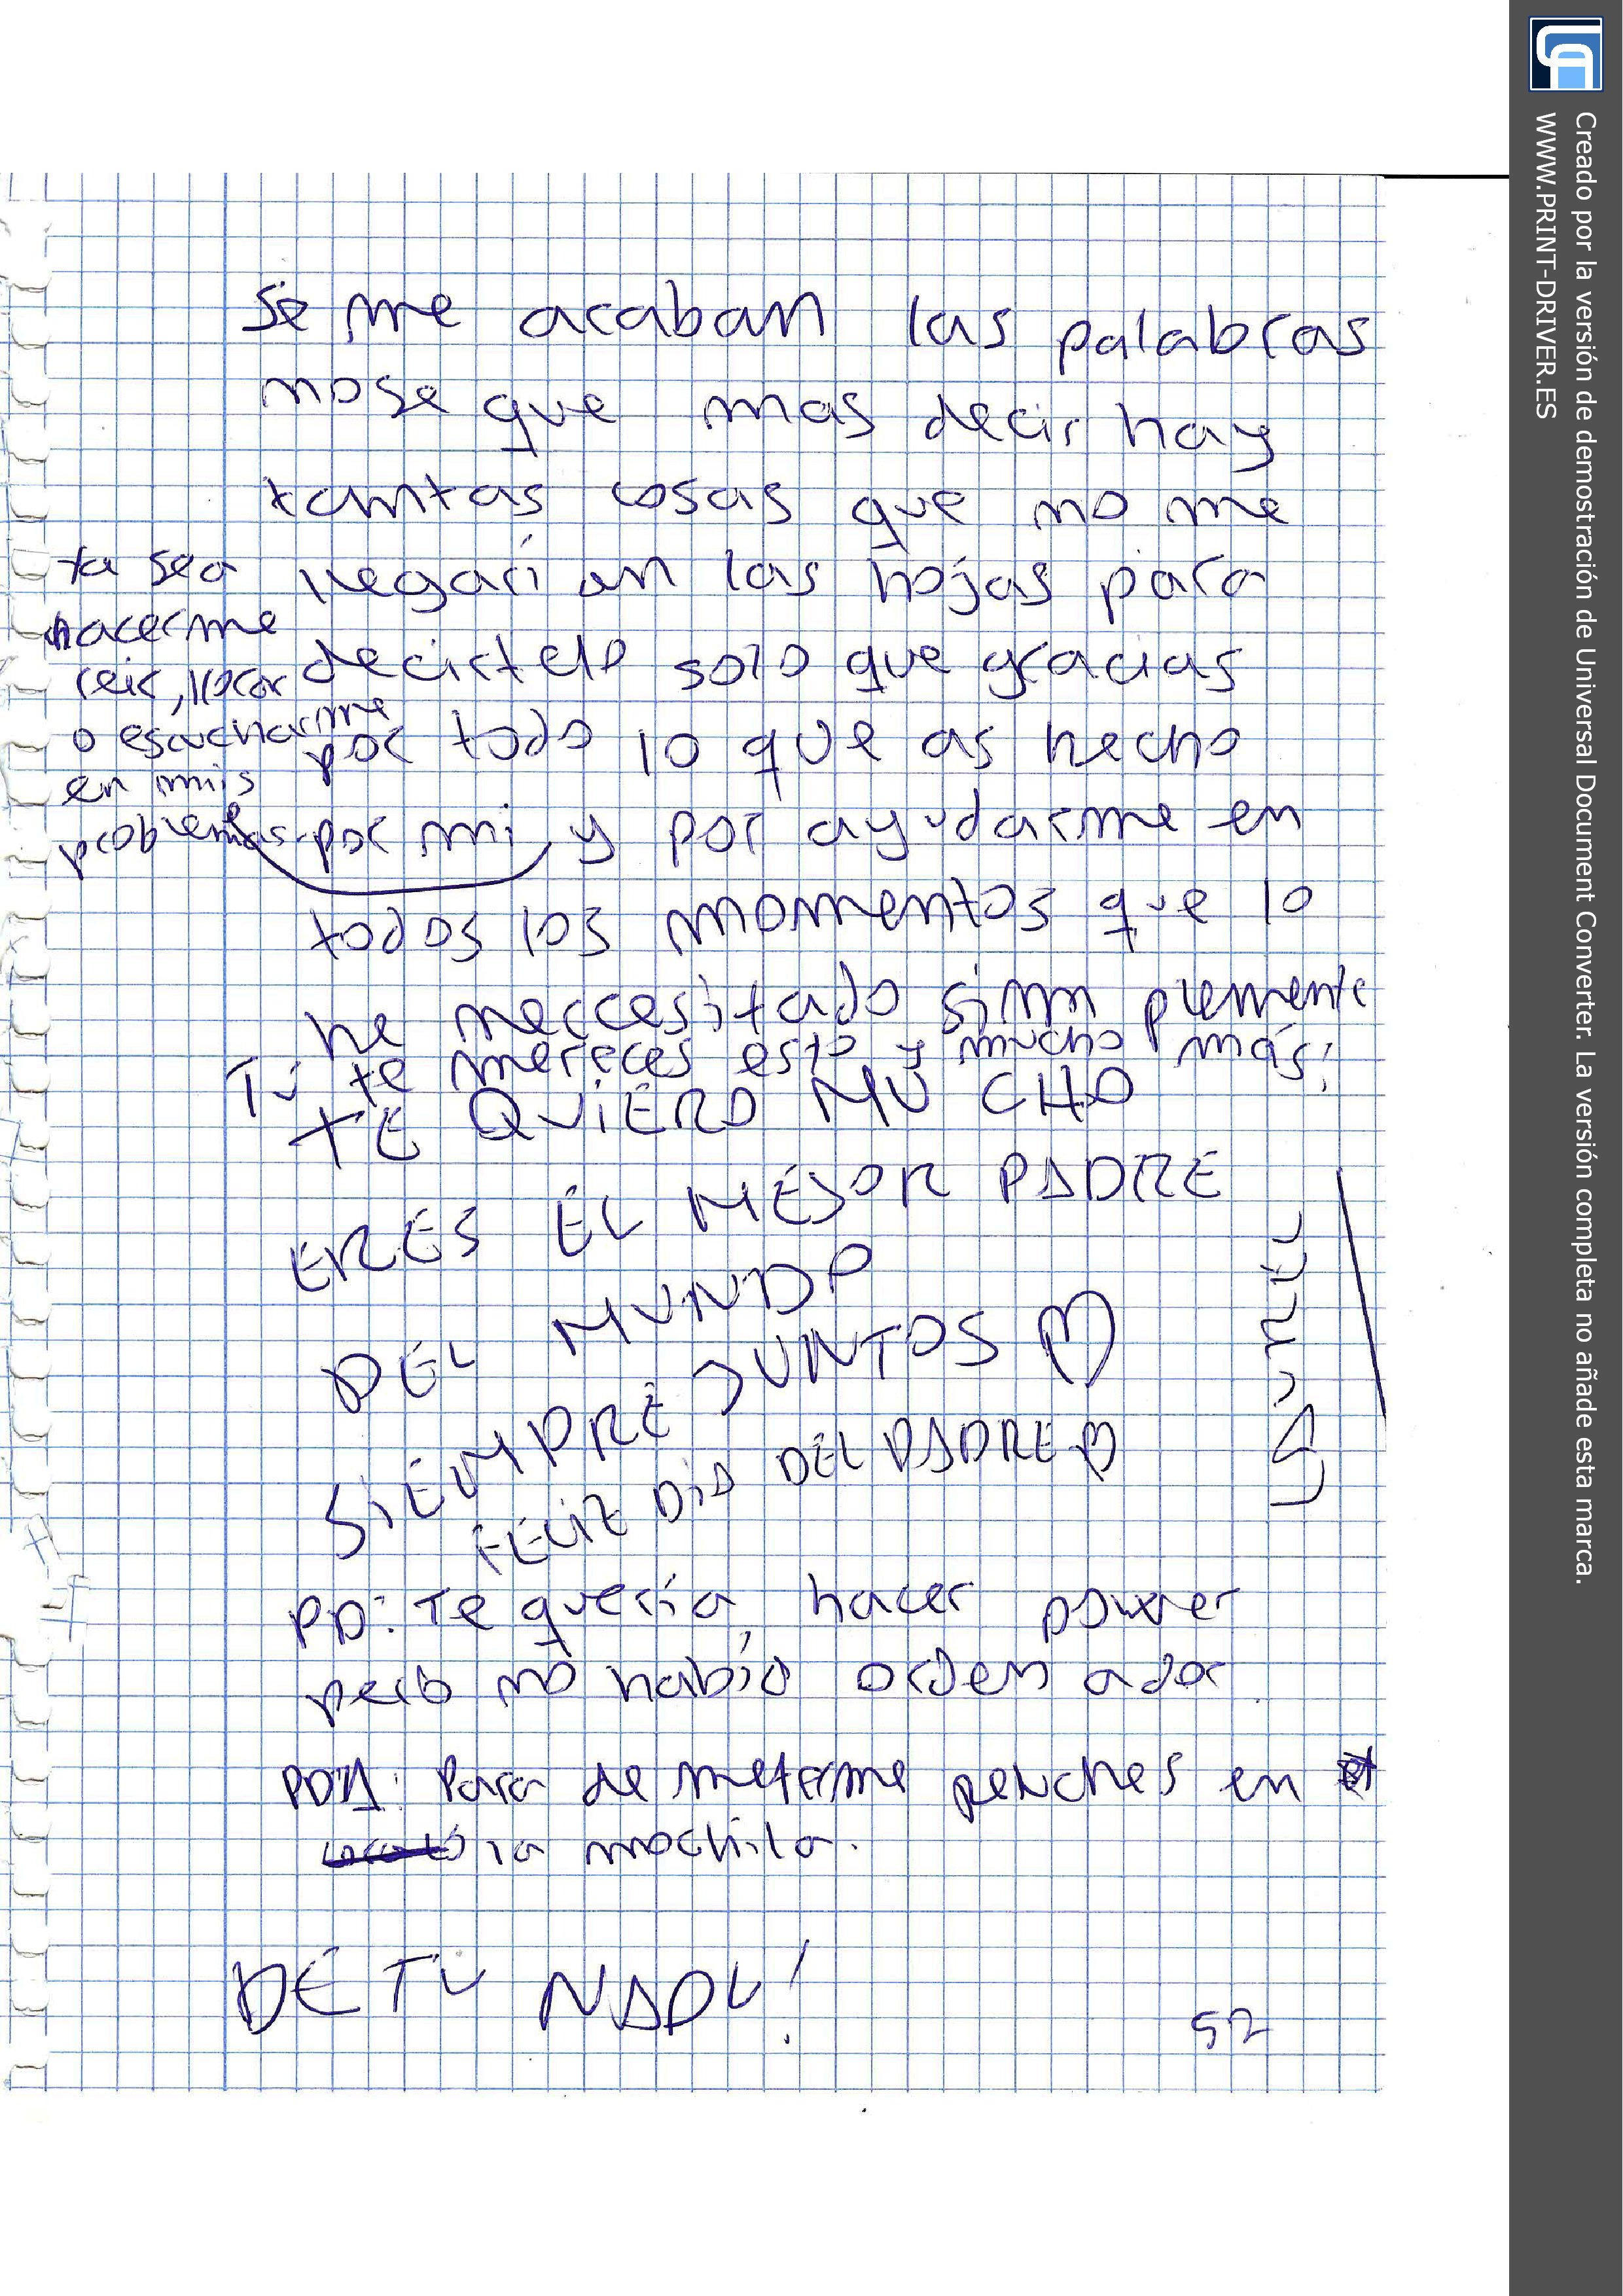 Se me acaban las palabras
no se que mas decir hay
tantas cosas que no me
llegarían las hojas para
decirtelo solo que gracias
por todo lo que as hecho
por mi, y por ayudarme en
ya sea
hacerme
reir, llorar
o escucharme
en mis
problemas
todos los momentos que lo
he neccesitado simm plemente
Tú te mereces esto y mucho más:
TE QUIERO MUCHO
ERES EL MEJOR PADRE
DEL MUNDO
SIEMPRE JUNTOS
FELIZ DIA DEL PADRE
PD: Te quería, hacer power
pero no había ordenador
PD1: Para de meterme peluches en
la mochila.
DE TU
52
Creado por la versión de demostración de Universal Document Converter. La versión completa no añade esta marca.
WWW.PRINT-DRIVER.ES